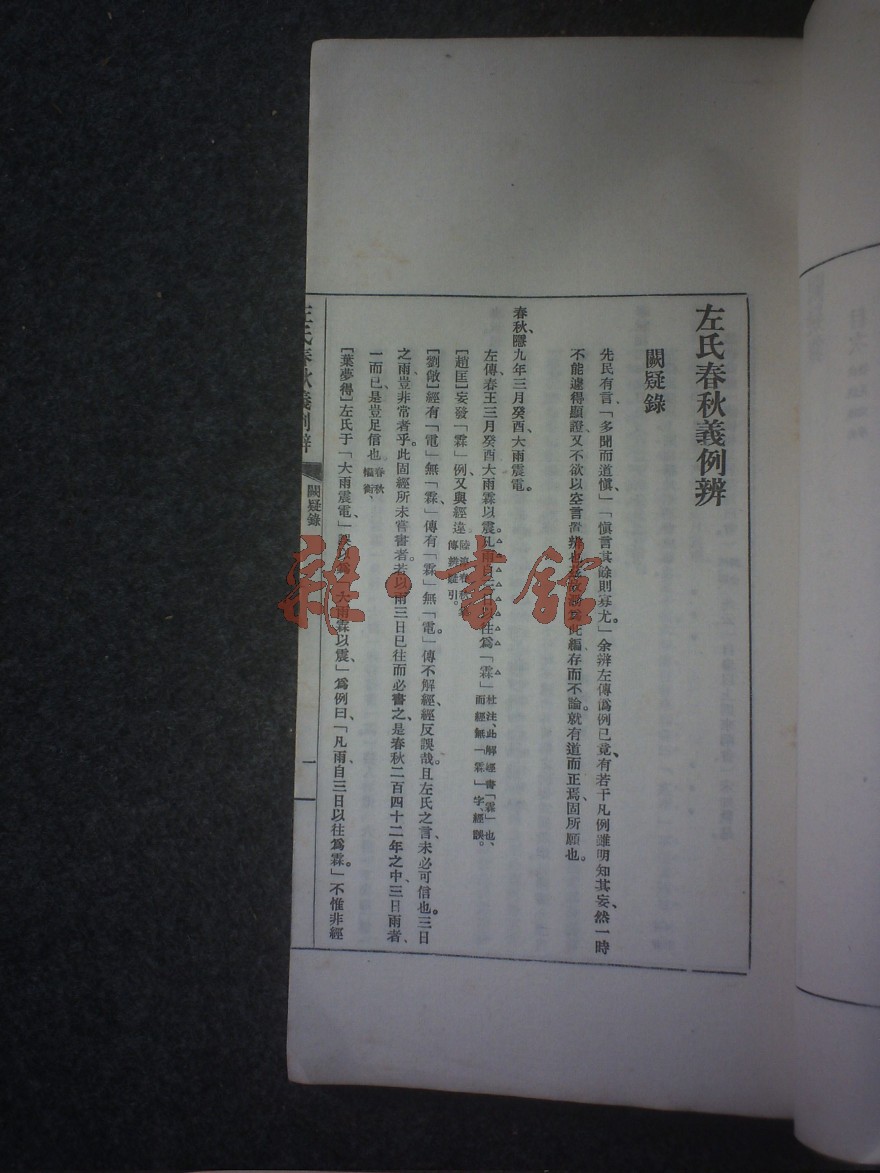 左氏春秋義例辨
闕疑錄
先民有言「多聞而道愼」「愼言其餘則寡尤。」余辨左傳僞例已竟、有若干凡例雖明知其妄、然一時
不能遽得顯證又不欲以空言置辨也爲此編存而不論。就有道而正焉、固所願也。
春秋、隱九年三月癸酉、大雨震電。
左傳、春王三月癸酉、大雨霖以震。凡雨自以往爲「霖」杜注、此解經書「霖」也、
而經無「霖」字、經誤。
[趙匡]妄發「霖」例、又與經違。陸春秋
傳辨疑引。
[劉敞]經有「電」無「霖」、傳有「霖」無「電。」傳不解經、經反誤哉。且左氏之言、未必可信也。三日
之雨、豈非常者乎。此固經所未嘗書者。若以雨三日已往而必書之、是春秋二百四十二年之中、三日雨者、
一而已、是豈足信也。春秋
權衡、
[葉夢得]左氏于「大雨震電、」誤以爲「大雨霖以震、」爲例曰、「凡雨自三日以往爲霖」。不惟非經
左氏春秋義例辨
闕疑錄
一
雜·書館